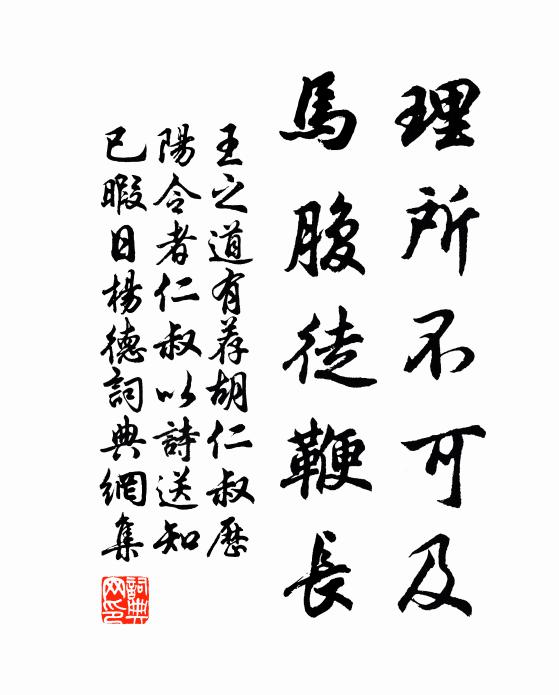 理所不可及
馬腹徒鞭長
王之道有荐胡仁叔歷
陽令者仁叔以詩送知
已暇日楊德詞典網集
詞典網印